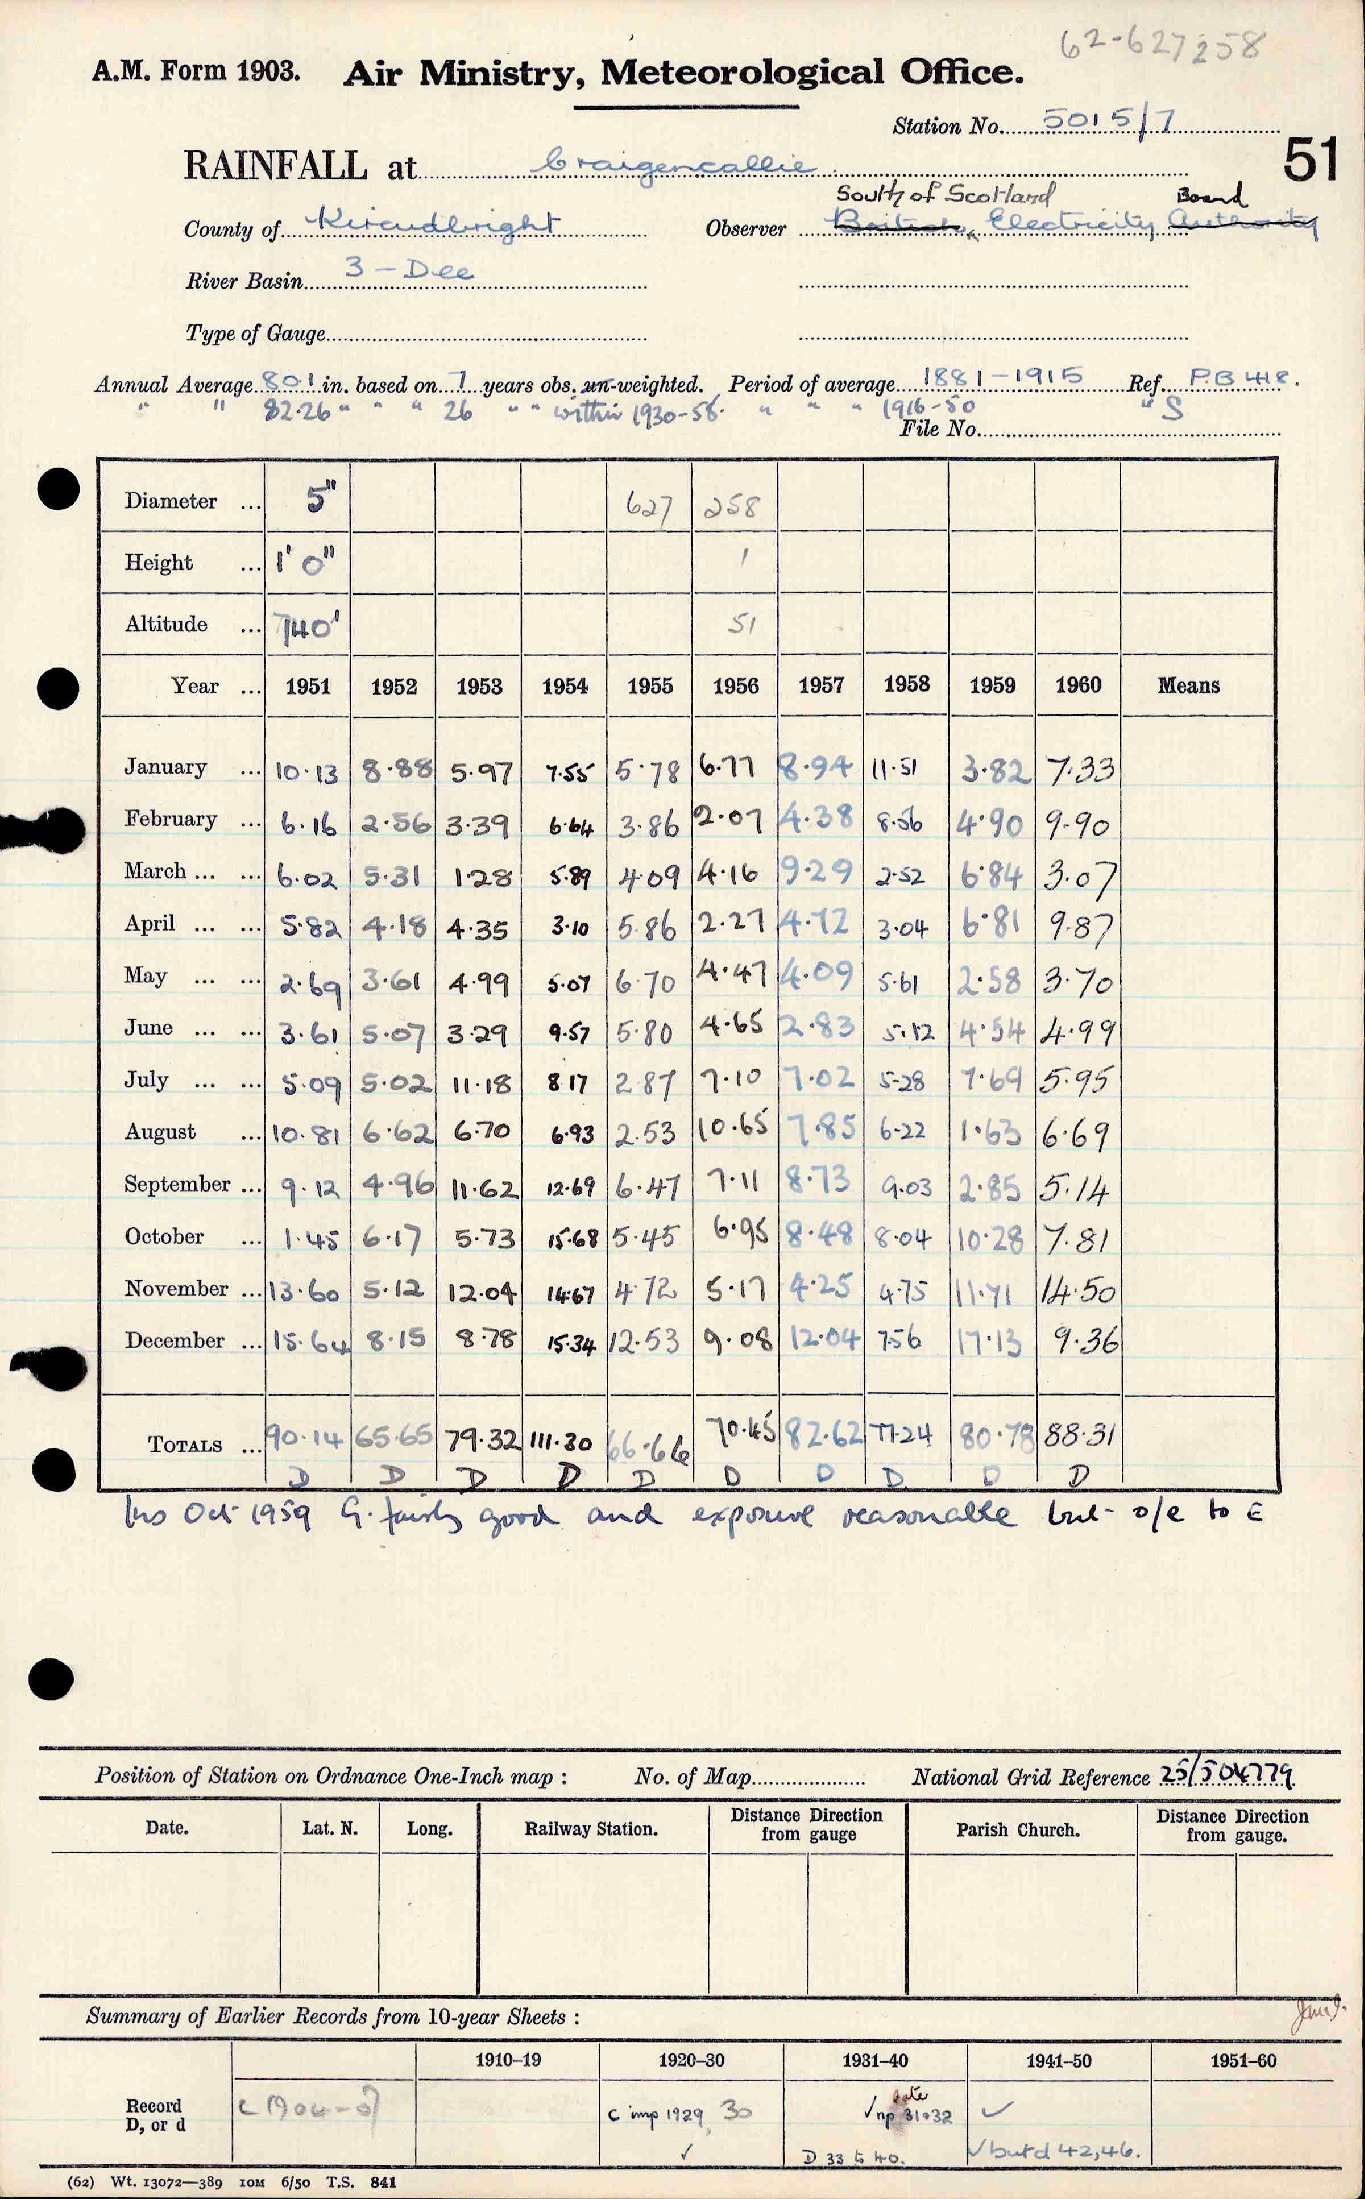 62-627258
A.M. Form 1903. Air Ministry, Meteorological Office.
Station No. 5015/7
51
RAINFALL at Craigencallie
South of Scotland Board
County of Kircudbright Observer British Electricity Authority
River Basin 3 - Dee
Type of Gauge
Annual Average 80.1 in. based on 7 years obs. un-weighted. Period of average 1881-1915 Ref. P.B 418.
" " 82.26 " " " 26 " " within 1930-58. " " " 1916-50 " S
File No.
Diameter ... 5" 627 258
Height ... 1' 0" 1
Altitude ... 740' 51
Year ... 1951 1952 1953 1954 1955 1956 1957 1958 1959 1960 Means
January ... 10.13 8.88 5.97 7.55 5.78 6.77 8.94 11.51 3.82 7.33
February ... 6.16 2.56 3.39 6.64 3.86 2.07 4.38 8.56 4.90 9.90
March ... ... 6.02 5.31 1.28 5.89 4.09 4.16 9.29 2.52 6.84 3.07
April ... ... 5.82 4.18 4.35 3.10 5.86 2.27 4.72 3.04 6.81 9.87
May ... ... 2.69 3.61 4.99 5.07 6.70 4.47 4.09 5.61 2.58 3.70
June ... ... 3.61 5.07 3.29 9.57 5.80 4.65 2.83 5.12 4.54 4.99
July ... ... 5.09 5.02 11.18 8.17 2.87 7.10 7.02 5.28 7.69 5.95
August ... 10.81 6.62 6.70 6.93 2.53 10.65 7.85 6.22 1.63 6.69
September ... 9.12 4.96 11.62 12.69 6.47 7.11 8.73 9.03 2.85 5.14
October ... 1.45 6.17 5.73 15.68 5.45 6.95 8.48 8.04 10.28 7.81
November ... 13.60 5.12 12.04 14.67 4.72 5.17 4.25 4.75 11.71 14.50
December ... 15.64 8.15 8.78 15.34 12.53 9.08 12.04 7.56 17.13 9.36
TOTALS ... 90.14 65.65 79.32 111.30 66.66 70.45 82.62 77.24 80.78 88.31
D D D D D D D D D D
Ins Oct 1959 G. fairly good and exposure reasonable but o/e to E
Position of Station on Ordnance One-Inch map : No. of Map National Grid Reference 25/504779
Date. Lat. N. Long. Railway Station. Distance Direction from gauge Parish Church. Distance Direction from gauge.
Summary of Earlier Records from 10-year Sheets :
1910-19 1920-30 1931-40 1941-50 1951-60
Record D, or d
c imp 1929, 30 ✓
✓ np 31+32 gate
D 33 to 40.
✓
✓ but d 42, 46.
(62) Wt. 13072—389 10M 6/50 T.S. 841